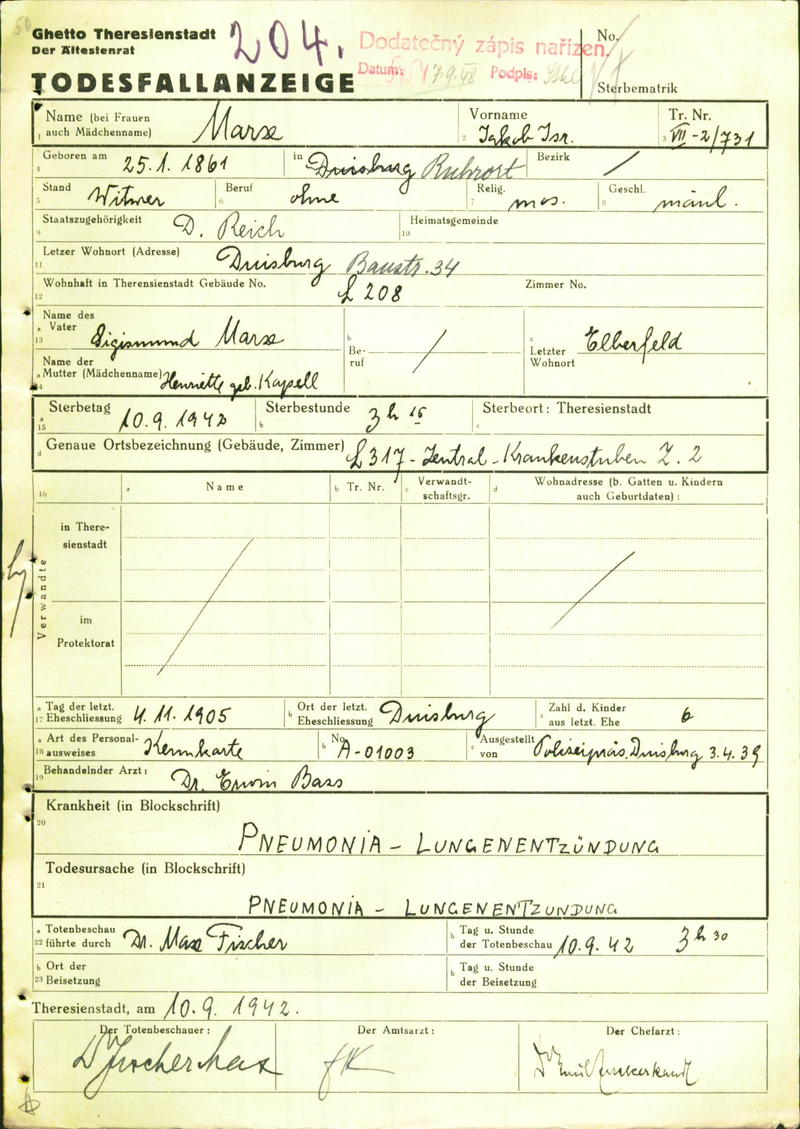 Ghetto Theresienstadt
Der Ältestenrat
204.
Dodatečný zápis nařízen.
Datum: 17.9.48 Podpis:
No.
Sterbematrik
TODESFALLANZEIGE
1 Name (bei Frauen auch Mädchenname) Marx
2 Vorname Jakob Isr.
3 Tr. Nr. VII-2/731
4 Geboren am 25.1.1861 in Duisburg Ruhrort Bezirk /
5 Stand Witwer
6 Beruf ohne
7 Relig. mos.
8 Geschl. männl.
9 Staatszugehörigkeit D. Reich
10 Heimatsgemeinde
11 Letzer Wohnort (Adresse) Duisburg Baustr. 34
12 Wohnhaft in Therensienstadt Gebäude No. L 208 Zimmer No.
13 a Name des Vater Sigismund Marx
b Beruf /
c Letzter Wohnort Elberfeld
14 a Name der Mutter (Mädchenname) Henriette geb. Kapell
15 a Sterbetag 10.9.1942
b Sterbestunde 3 h 15
c Sterbeort: Theresienstadt
d Genaue Ortsbezeichnung (Gebäude, Zimmer) L 317 - Zentral - Krankenstuben Z. 2
16 a Name b Tr. Nr. c Verwandtschaftsgr. d Wohnadresse (b. Gatten u. Kindern auch Geburtdaten):
Verwandte
in Theresienstadt
im Protektorat
17 a Tag der letzt. Eheschliessung 4.11.1905
b Ort der letzt. Eheschliessung Duisburg
c Zahl d. Kinder aus letzt. Ehe 6
18 a Art des Personalausweises Kennkarte
b No. A-01003
c Ausgestellt von Polizeipräs. Duisburg 3.4.39
19 Behandelnder Arzt: Dr. Erwin Bass
20 Krankheit (in Blockschrift)
PNEUMONIA - LUNGENENTZÜNDUNG
21 Todesursache (in Blockschrift)
PNEUMONIA - LUNGENENTZUNDUNG
22 a Totenbeschau führte durch Dr. Max Fischer
b Tag u. Stunde der Totenbeschau 10.9.42 3 h 30
23 b Ort der Beisetzung
b Tag u. Stunde der Beisetzung
Theresienstadt, am 10.9.1942.
Der Totenbeschauer: Der Amtsarzt: Der Chefarzt:
Dr Fischer Max